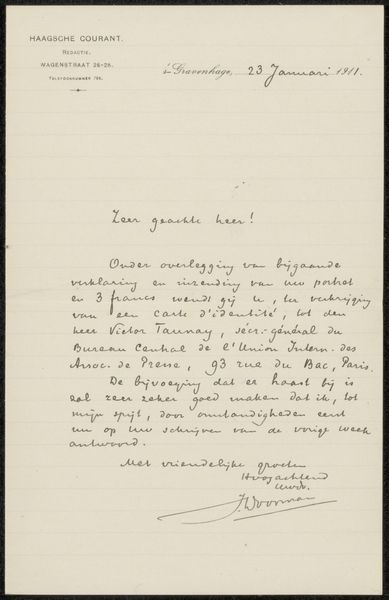 HAAGSCHE COURANT.
REDACTIE.
WAGENSTRAAT 26-28.
TELEFOONNUMMER 196.
's Gravenhage, 23 Januari 1911.
Zeer geachte heer!
Onder overlegging van bijgaande
verklaring en inzending van uw portret
en 3 francs wendt gij u, ter verkrijging
van een carte d'identité, tot den
heer Victor Taunay, sécr.-général du
Bureau Central de l'Union Intern. des
Assoc. de Presse, 93 rue du Bac, Paris.
De bijvoeging dat er haast bij is
zal zeer zeker goed maken dat ik, tot
mijn spijt, door omstandigheden eerst
nu op uw schrijven van de vorige week
antwoord.
Met vriendelijke groeten
Hoogachtend
J. Doorman